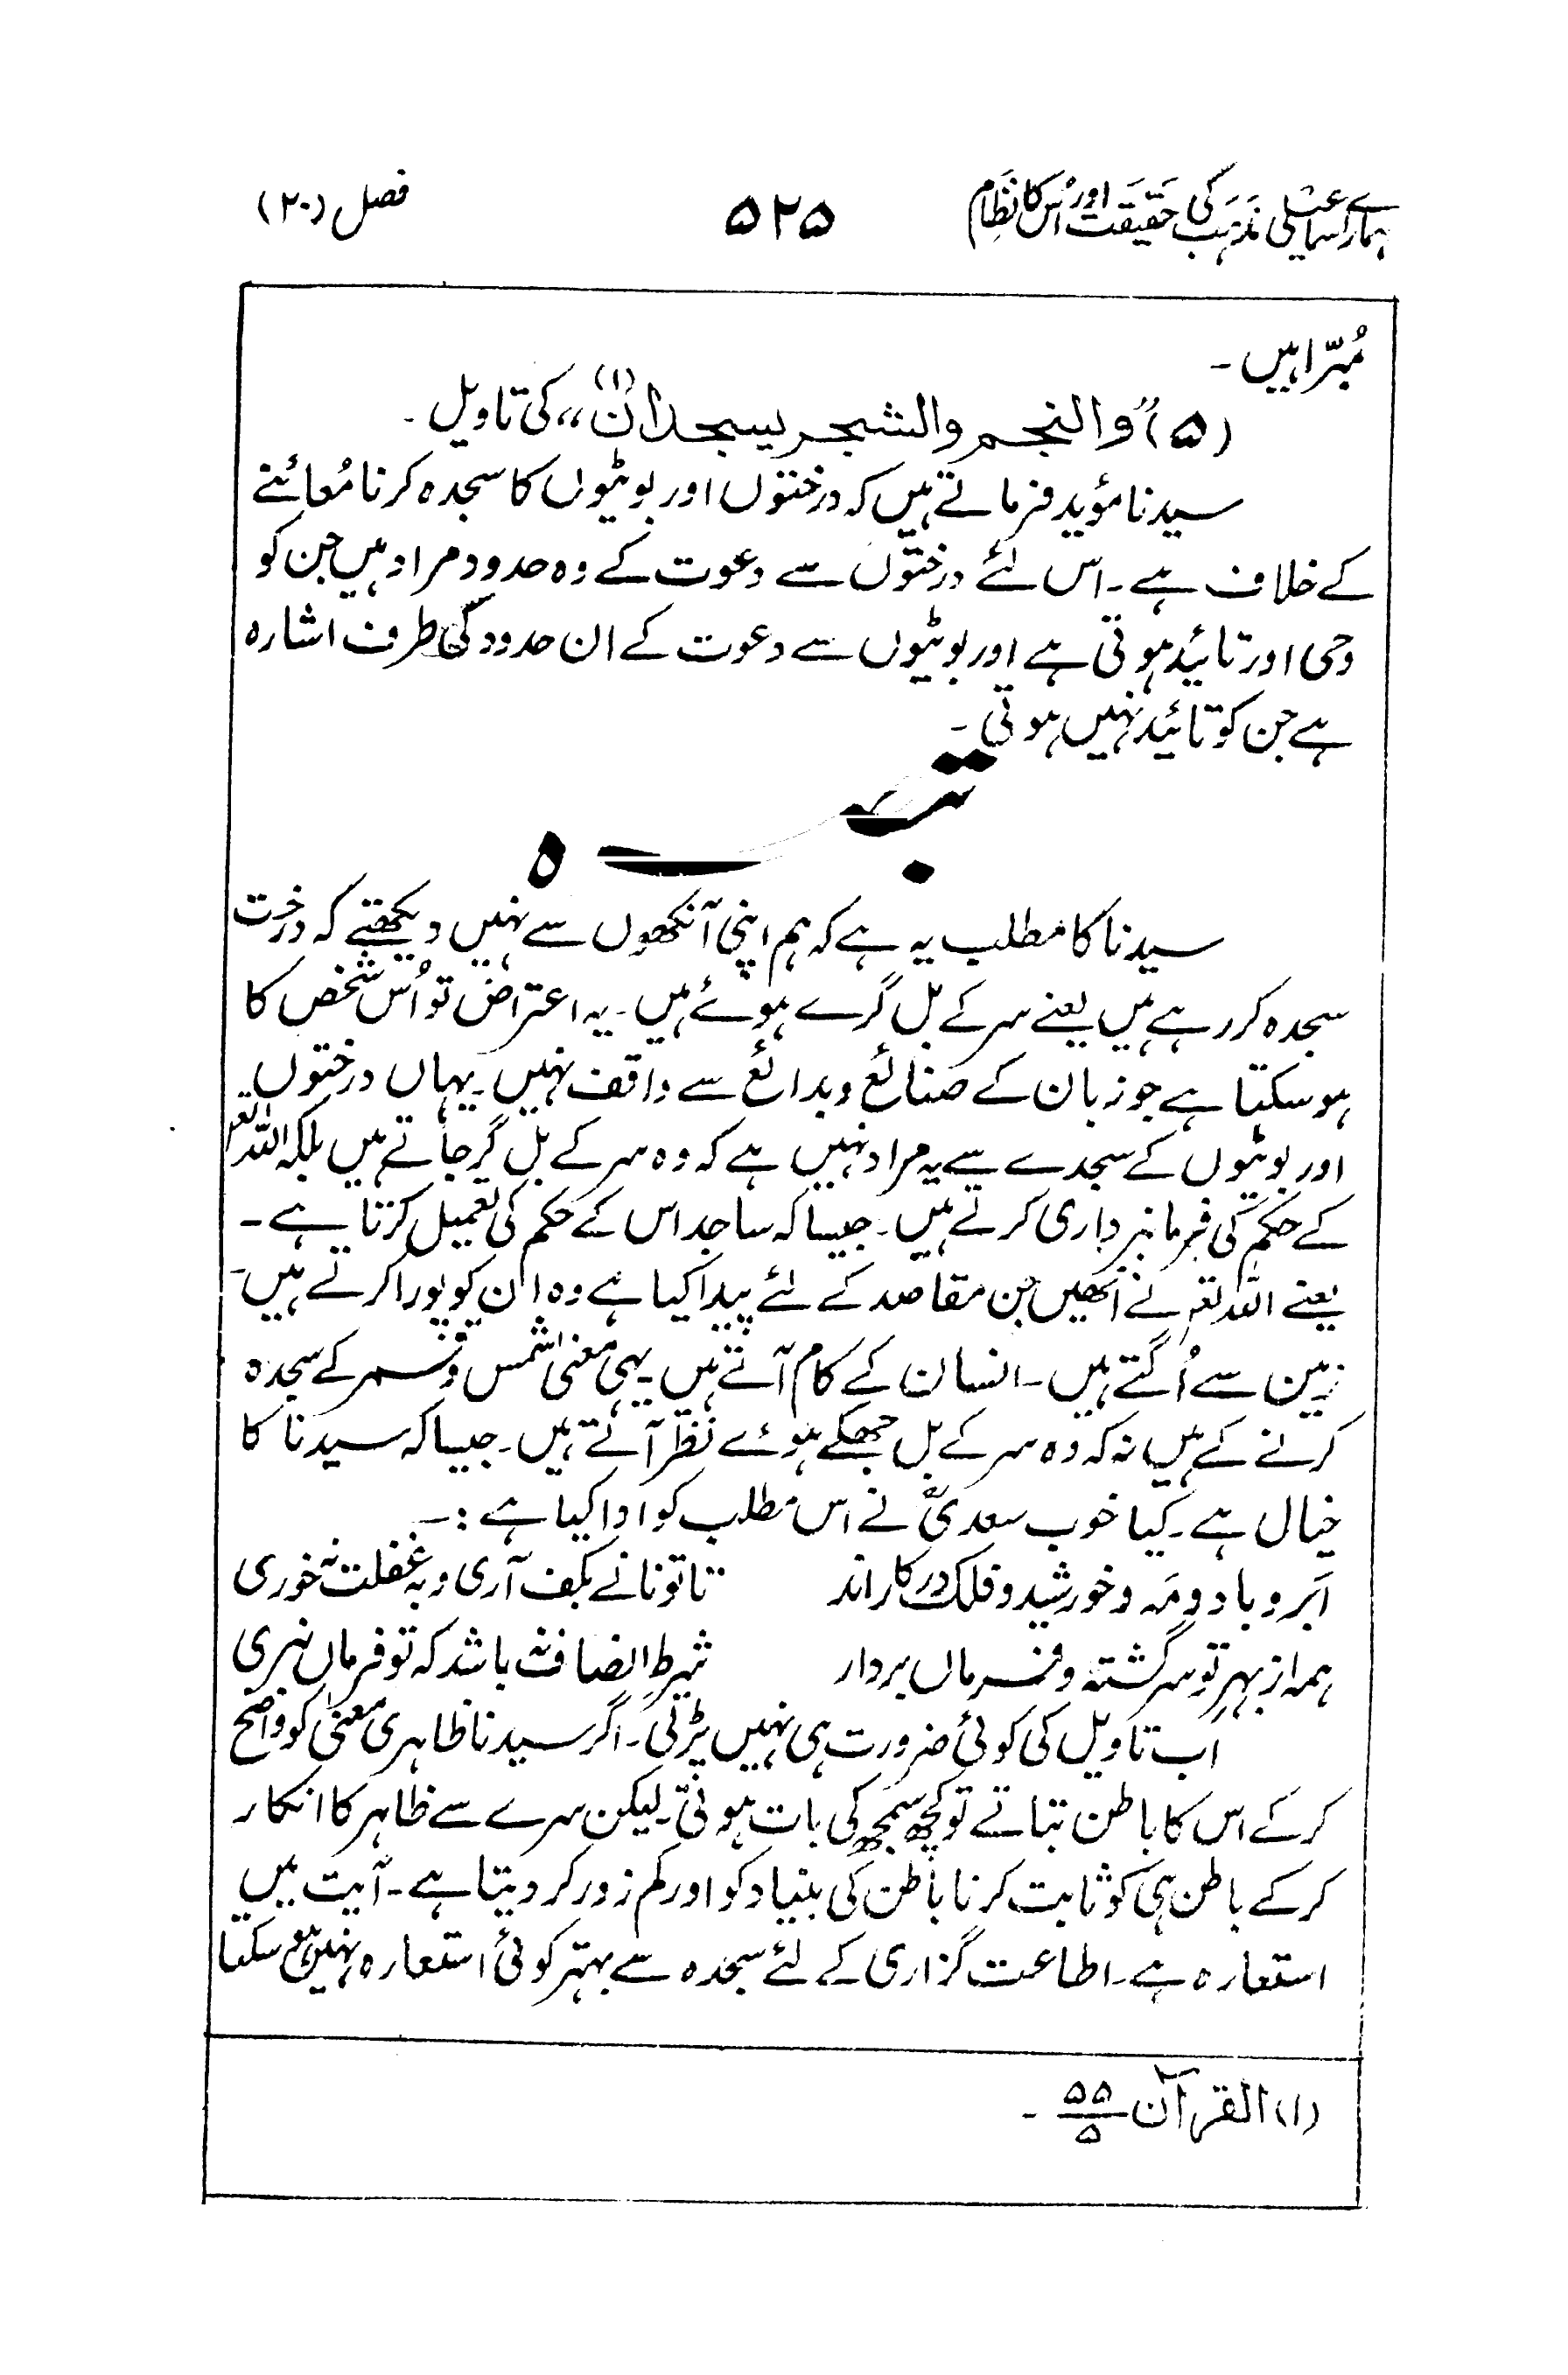 ہمارے اسماعیلی مذہب کی حقیقت اور اُس کا نظام
۵۲۵
فصل (۲۰)
مُبرّا ہیں ۔
(۵) ”والنجم والشجر یسجدان(۱)“ کی تاویل ۔
سیدنا مؤید فرماتے ہیں کہ درختوں اور بوٹیوں کا سجدہ کرنا مُعائنے
کے خلاف ہے ۔ اس لئے درختوں سے دعوت کے وہ حدود مراد ہیں جن کو
وحی اور تائید ہوتی ہے اور بوٹیوں سے دعوت کے ان حدود کی طرف اشارہ
ہے جن کو تائید نہیں ہوتی ۔
تبصرہ
سیدنا کا مطلب یہ ہے کہ ہم اپنی آنکھوں سے نہیں دیکھتے کہ درخت
سجدہ کر رہے ہیں یعنے سر کے بل گرے ہوئے ہیں ۔ یہ اعتراض تو اُس شخص کا
ہو سکتا ہے جو زبان کے صنائع و بدائع سے واقف نہیں ۔ یہاں درختوں
اور بوٹیوں کے سجدے سے یہ مراد نہیں ہے کہ وہ سر کے بل گر جاتے ہیں بلکہ اللہ تعہ
کے حکم کی فرمانبرداری کرتے ہیں ۔ جیسا کہ ساجد اس کے حکم کی تعمیل کرتا ہے ۔
یعنے اللہ تعہ نے اُنھیں جن مقاصد کے لئے پیدا کیا ہے وہ ان کو پورا کرتے ہیں ۔
زمین سے اُگتے ہیں ۔ انسان کے کام آتے ہیں ۔ یہی معنی شمس و قمر کے سجدہ
کرنے کے ہیں نہ کہ وہ سر کے بل جھکے ہوئے نظر آتے ہیں ۔ جیسا کہ سیدنا کا
خیال ہے ۔ کیا خوب سعدیؒ نے اس مطلب کو ادا کیا ہے :۔
ابر و باد و مہ و خورشید و فلک در کار اند تا تو نانے بکف آری و بہ غفلت نہ خوری
ہمہ از بہرِ تو سرگشتہ و فرماں بردار شرطِ انصاف نہ باشد کہ تو فرماں نبری
اب تاویل کی کوئی ضرورت ہی نہیں پڑتی ۔ اگر سیدنا ظاہری معنیٰ کو واضح
کر کے اس کا باطن بتاتے تو کچھ سمجھ کی بات ہوتی ۔ لیکن سرے سے ظاہر کا انکار
کر کے باطن ہی کو ثابت کرنا باطن کی بنیاد کو اور کم زور کر دیتا ہے ۔ آیت میں
استعارہ ہے ۔ اطاعت گزاری کے لئے سجدہ سے بہتر کوئی استعارہ نہیں ہو سکتا
(۱) القرآن ۵۵/۵ ۔